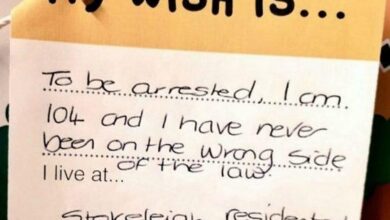 MY WISH IS...
To be arrested, I am
104 and I have never
been on the wrong side
of the law.
I live at...
Stokeleigh residential